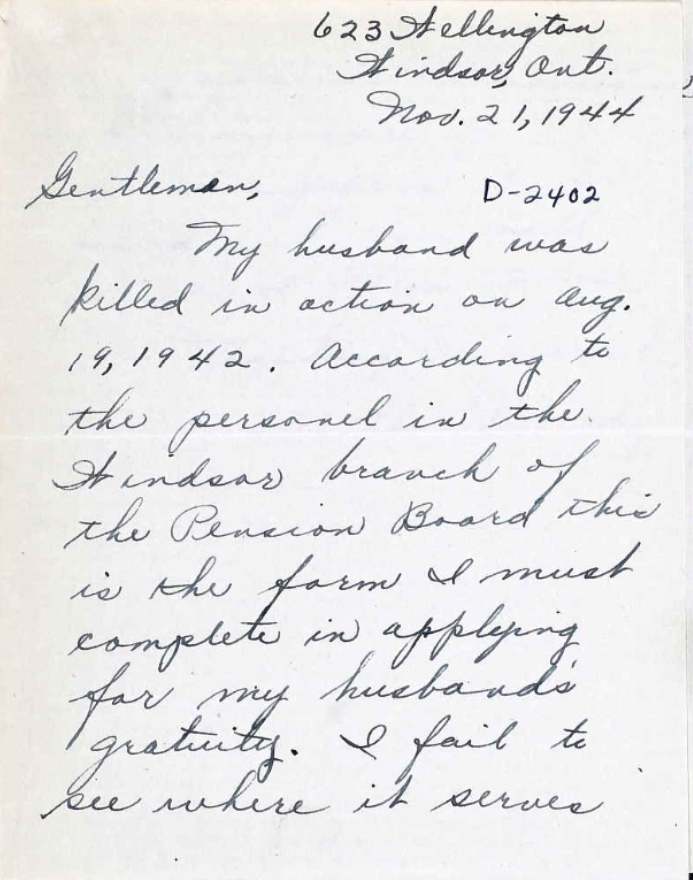 623 Wellington
Windsor, Ont.
Nov. 21, 1944
Gentleman,
D-2402
My husband was
killed in action on Aug.
19, 1942. According to
the personel in the
Windsor branch of
the Pension Board this
is the form I must
complete in applying
for my husband's
gratuity. I fail to
see where it serves